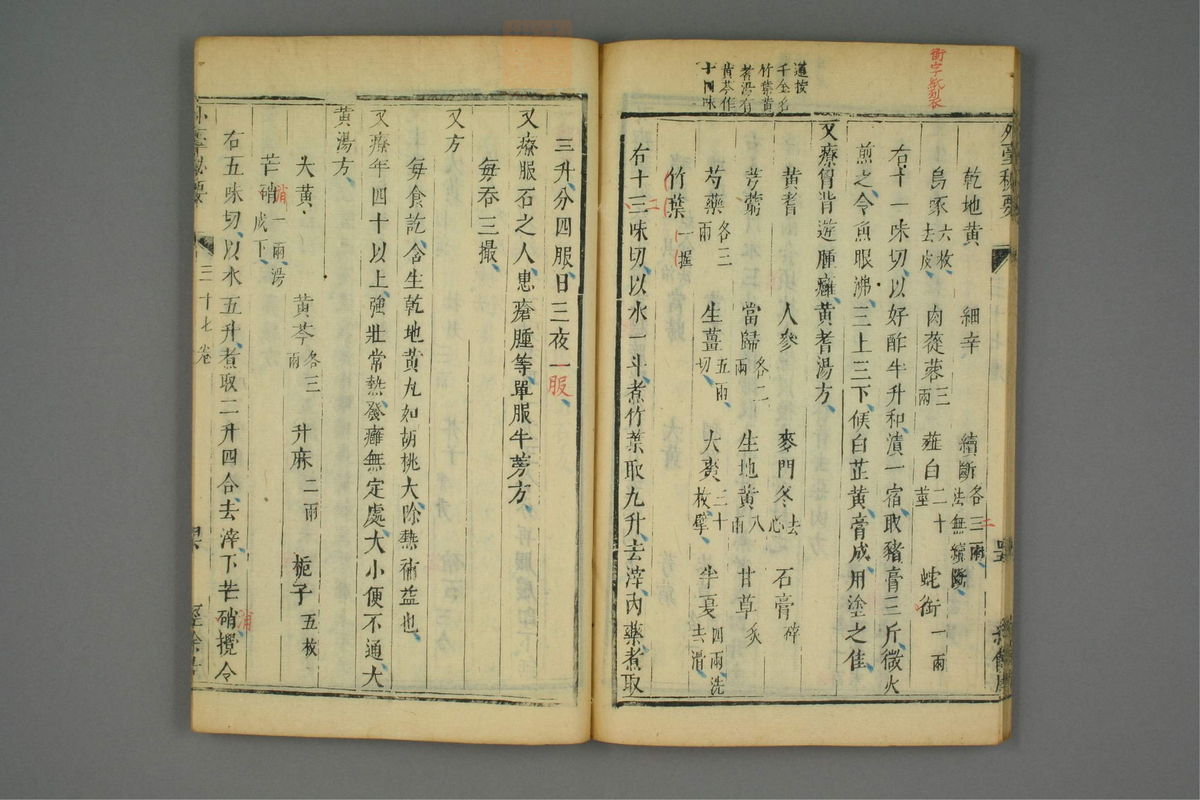 乾地黃 細辛 續斷各三兩 千金翼法無續斷
烏啄六枚去皮 肉蓯蓉三兩 薤白二十莖 蛇銜一兩
右十一味切以好酢半升和漬一宿取豬膏三斤微火
煎之令魚眼沸三上三下候白芷黃膏成用塗之佳
又療胷背遊腫癰黃耆湯方
黃耆 人參 麥門冬去心 石膏碎
芎藭 當歸各二兩 生地黃八兩 甘草炙
芍藥各三兩 生薑五兩切 大棗三十枚擘 半夏四兩洗去滑
竹葉一握
右十三味切以水一斗煮竹葉取九升去滓內藥煮取
千金名
竹葉黃
耆湯有
黃芩作
十四味
三升分四服日三夜一服
又療服石之人患瘡腫等單服牛蒡方
每吞三撮
又方
每食訖含生乾地黃丸如胡桃大除熱術益也
又療年四十以上強壯常熱發癰無定處大小便不通大
黃湯方
大黃 黃芩各三兩 升麻二兩 梔子五枚
芒硝一兩湯成下
右五味切以水五升煮取二升四合去滓下芒硝攪令
三十七卷
外臺秘要